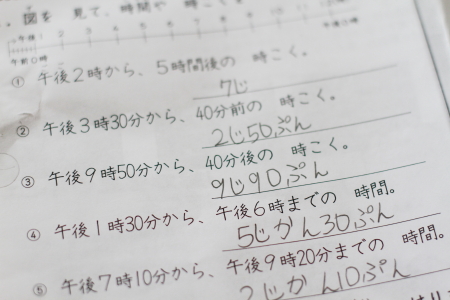 図を 見て、時間や 時こく
午後 1 2 3
午前0時
午後0時
① 午後2時から、5時間後の 時こく。
7じ
② 午後3時30分から、40分前の 時こく。
2じ50ぷん
③ 午後9時50分から、40分後の 時こく。
9じ90ぷん
④ 午後1時30分から、午後6時までの 時間。
5じかん30ぷん
⑤ 午後7時10分から、午後9時20分までの 時間。
2じかん10ぷん